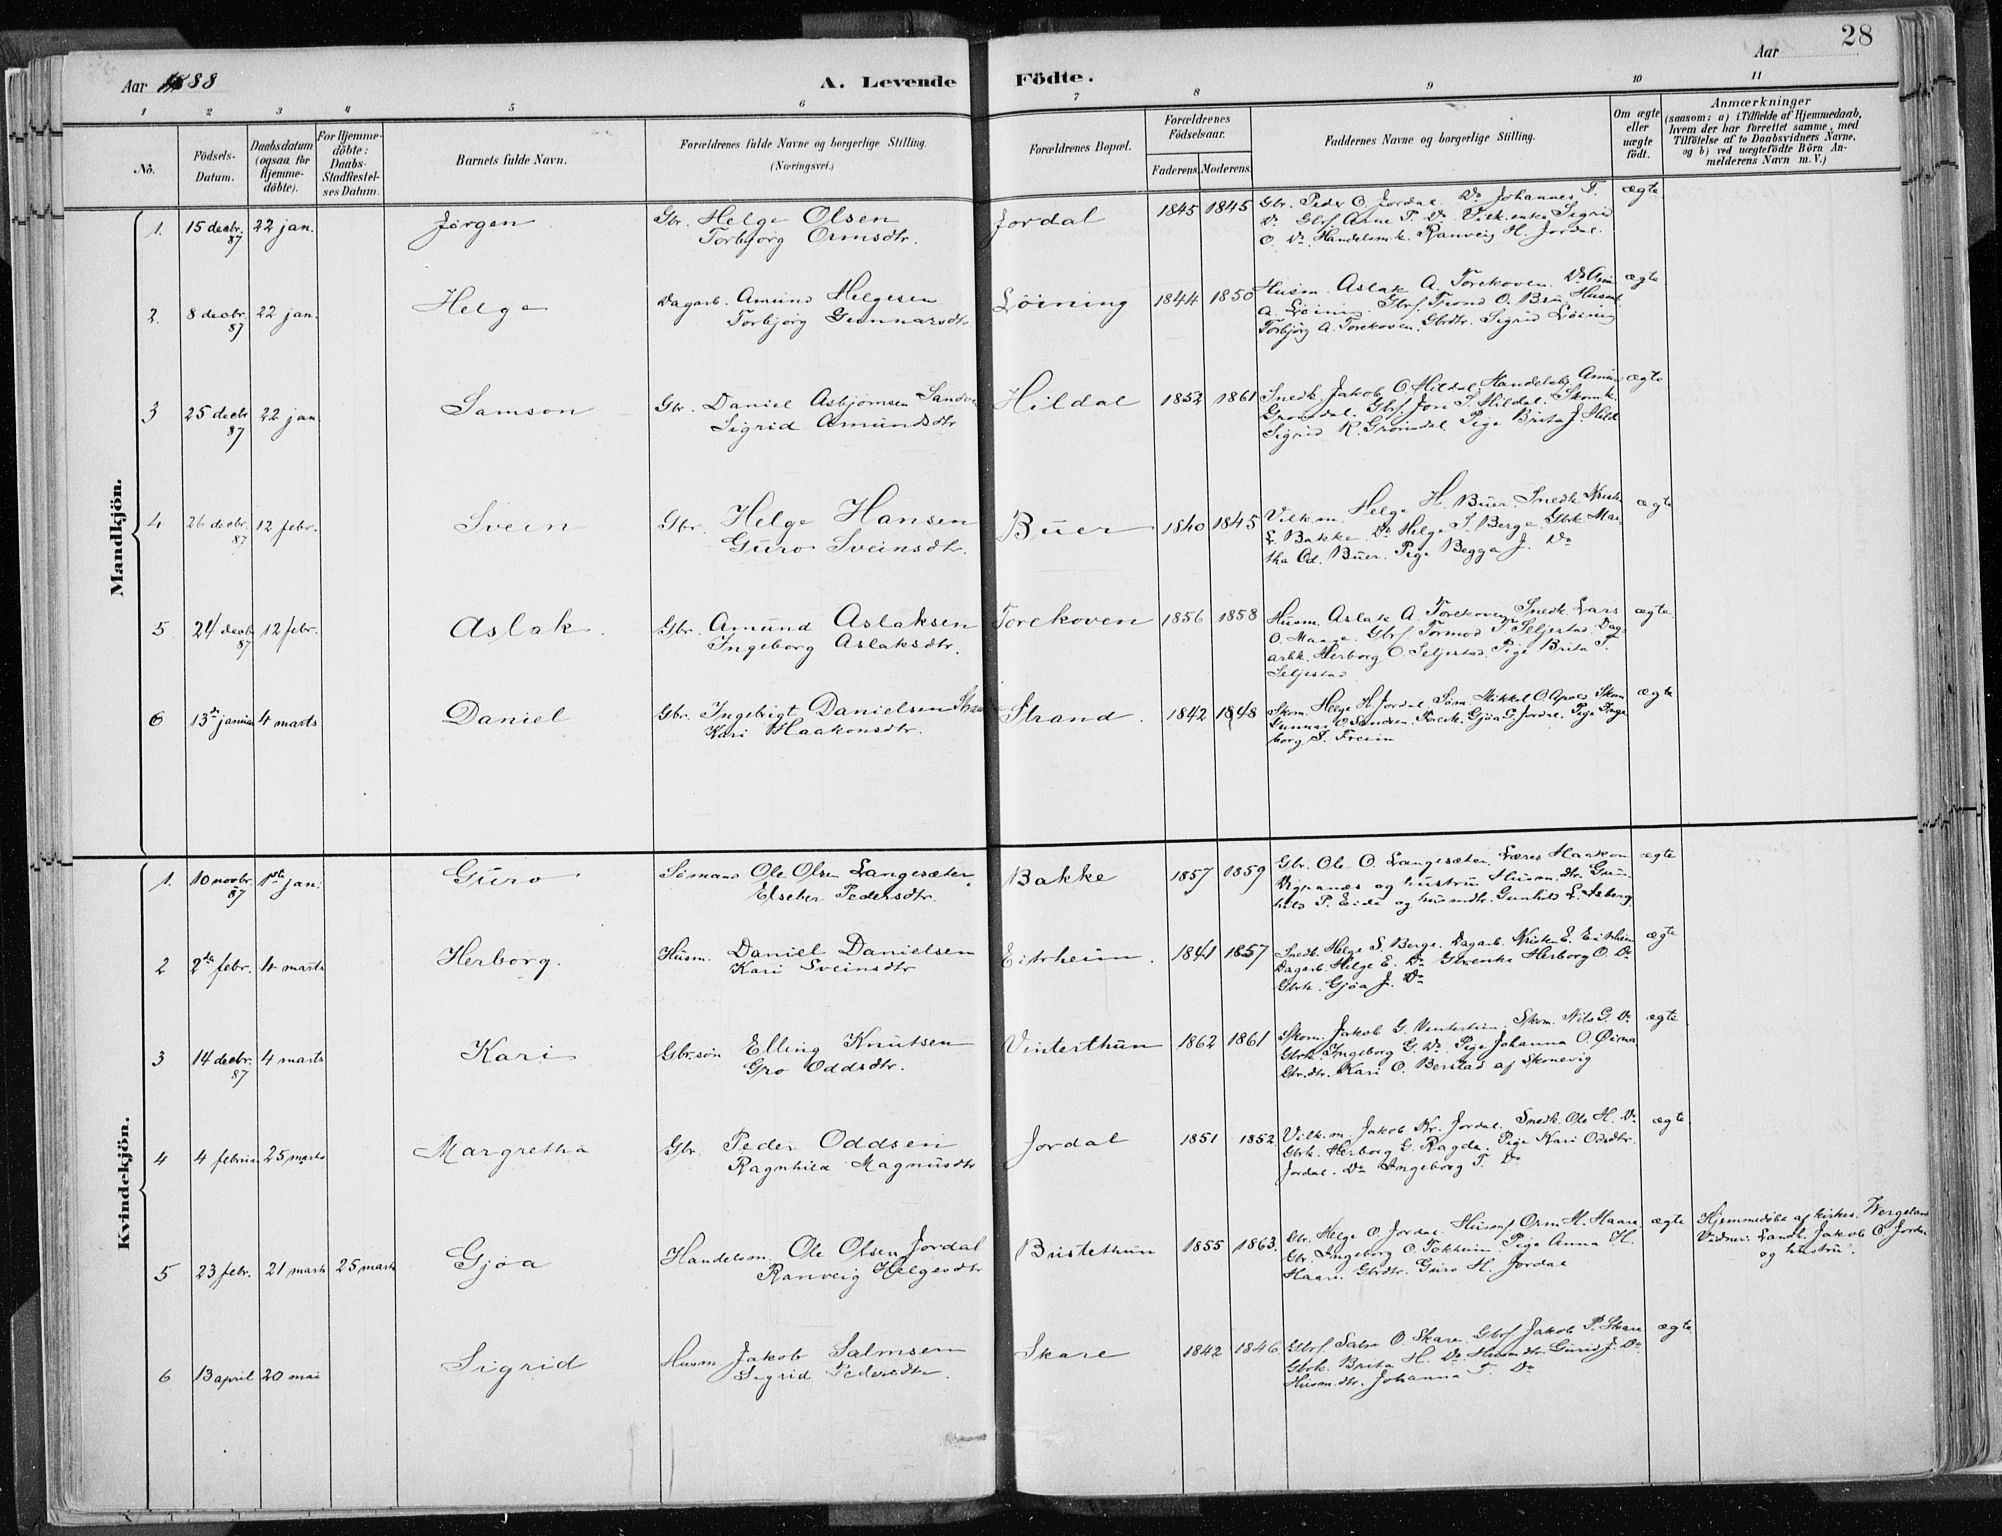 28
Aar 1888
A. Levende Födte.
Aar
1 2 3 4 5 6 7 8 9 10 11
No.
Födsels-Datum.
Daabsdatum (ogsaa for Hjemme-döbte).
For Hjemme-döbte: Daabs-Stadfæstel-ses Datum.
Barnets fulde Navn.
Forældrenes fulde Navne og borgerlige Stilling.
(Næringsvei.)
Forældrenes Bopæl.
Forældrenes Födselsaar.
Faderens. Moderens.
Faddernes Navne og borgerlige Stilling.
Om ægte eller uægte födt.
Anmærkninger
(saasom: a) i Tilfælde af Hjemmedaab, hvem der har forrettet samme, med Tilföielse af to Daabsvidners Navne, og b) ved uægtefödte Börn An-melderens Navn m. V.)
Mandkjön.
1. 15 decbr. 87 22 jan. Jørgen Gbr. Helge Olsen
Torbjørg Ormsdtr. Jordal 1845 1845 Gbr. Peder O. Jordal. Do Johannes T.
Do Gbrf. Arne T. Do Vilk.enke Sigrid
O. Do Handelsm.k. Ranveig H. Jordal. ægte
2. 8 decbr. 87 22 jan. Helge Dagarb. Amund Helgesen
Torbjørg Gunnarsdtr Löining 1844 1850 Husm. Aslak A. Torekoven. Do
A. Löining. Gbrf. Trond O. Bru. Husmk.
Torbjörg A. Torekoven. Gbrdtr. Sigrid Löining ægte
3 25 decbr 87 22 jan. Samson Gbr. Daniel Asbjørnsen
Sigrid Amundsdtr Hildal 1852 1861 Snedk. Jakob O. Hildal.
Gronsdal. Gbrf. Jon S. Hildal. Skomk.
Sigrid K. Grönsdal. Pige Brita J. Hild ægte
4 26 decbr. 87 12 febr. Svein Gbr. Helge Hansen
Guro Sveinsdtr. Buer 1840 1845 Vilkm. Helge H. Buer. Snedk.
L. Bakke. Do Helge S. Berge. Gbrk. Mar
tha Od. Buer. Pige Begga J. Do ægte
5 24 decbr 87 12 febr. Aslak. Gbr. Amund Aslaksen
Ingeborg Aslaksdtr. Torekoven 1856 1858 Husm. Aslak A. Torekoven. Snedk. Lars
O. Maage. Gbrf. Tormod T. Seljestad. Dag
arbk. Herborg O. Seljestad. Pige Brita T.
Seljestad ægte
6 13de januar 4 marts Daniel Gbr. Ingebrigt Danielsen
Kari Haakonsdtr. Strand. 1842 1848 Skom. Helge H. Jordal. Søm. Mikkel O. Apold. Skom
Gunnar O. Sandven. Gjøa G. Jordal. Pige Inge
borg T. Freim ægte
Kvindekjön.
1. 10 novbr. 87 1ste jan. Guro Sömand Ole Olsen Langesæter
Elseber Pedersdtr. Bakke 1857 1859 Gbr. Ole O. Langesæter. Lærer Haakon
Digranæs og hustru. Husm.dtr. Gun
hild P. Eide og husmdtr. Gunhild L. ægte
2 2den febr. 4 marts Herborg. Husm. Daniel Danielsen
Kari Sveinsdtr Eitrheim. 1841 1857 Snedk. Helge S. Berge. Dagarb. Kristen E. Eitrheim
Dagarb. Helge E. Do Gbr.enke Herborg O. Do
Gbrk. Gjøa J. Do ægte
3 14 decbr. 87 4 marts Kari Gbr.søn Elling Knutsen
Gro Oddsdtr. Vinterthun 1862 1861 Skom. Jakob G. Vinterthun. Skom. Nils G. Do
Gbrk. Ingeborg G. Do Pige Johanna O.
Gbr.dtr. Kari O. Berstad af Skonevig ægte
4 4 februar 25 marts Margretha Gbr. Peder Oddsen
Ragnhild Magnusdtr Jordal 1851 1852. Vilk.m. Jakob Kr. Jordal. Snedk. Ole H. Do
Gbrk. Herborg G. Ragde. Pige Kari Odsdtr.
Jordal. Do Ingeborg T. Do ægte
5 23 febr. 21 marts 25 marts Gjøa Handelsm. Ole Olsen Jordal
Ranveig Helgesdtr Bustethun 1855 1863. Gbr. Helge O. Jordal. Husmf. Orm H. Haare.
Gbr. Ingeborg O. Tokheim. Pige Anna H.
Haare. Gbrdtr. Guro H. Jordal ægte Hjemmedøbt af kirkes. Wergeland
Vidner: Landh. Jakob O. Jordal
og hustru.
6 13 april 20 mai Sigrid Husm Jakob Salmsen
Sigrid Pedersdtr. Skare 1842 1846 Gbrf. Salm O. Skare. Gbrf. Jakob P. Skare
Gbrk. Brita H. Do. Husmdtr. Gurid J. Do
Husm.dtr. Johanna T. Do ægte